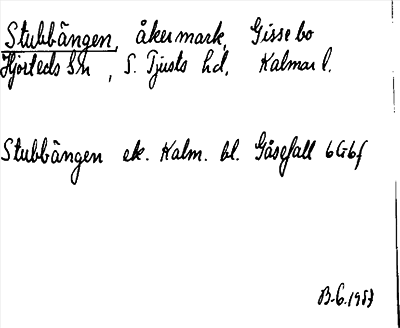 Stubbängen, åkermark, Gissebo
Hjorteds sn, S. Tjusts hd, Kalmar l.
Stubbängen ek. Kalm. bl. Gåsefall 6G6f
B.G.1957